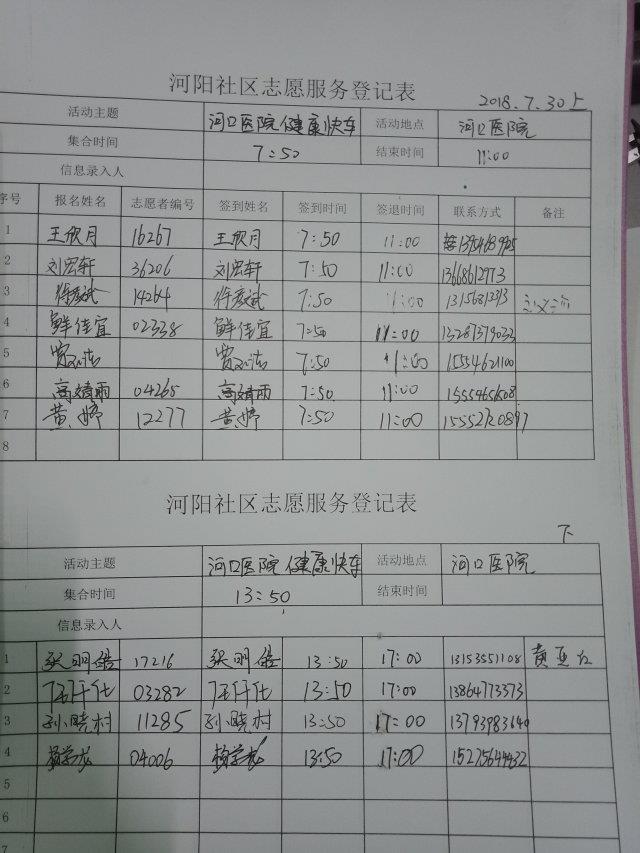 河阳社区志愿服务登记表
2018.7.30上
活动主题 河口医院健康快车 活动地点 河口医院
集合时间 7:50 结束时间 11:00
信息录入人
序号 报名姓名 志愿者编号 签到姓名 签到时间 签退时间 联系方式 备注
1 王欣月 16267 王欣月 7:50 11:00
2 刘宏轩 36206 刘宏轩 7:50 11:00 13668612773
3 14264 7:50 11:00
4 鲜佳宜 02338 鲜佳宜 7:50 11:00 13281379032
5 7:50 11:00 15554621100
6 高婧雨 04265 高婧雨 7:50 11:00
7 黄婷 12277 黄婷 7:50 11:00 15552720897
8
河阳社区志愿服务登记表
下
活动主题 河口医院健康快车 活动地点 河口医院
集合时间 13:50 结束时间
信息录入人
1 张明皓 17216 张明皓 13:50 17:00 13153551108
2 03282 13:50 17:00 13864773373
3 孙晓村 11285 孙晓村 13:50 17:00 13793983640
4 04006 13:50 17:00 15275644432
5
6
7